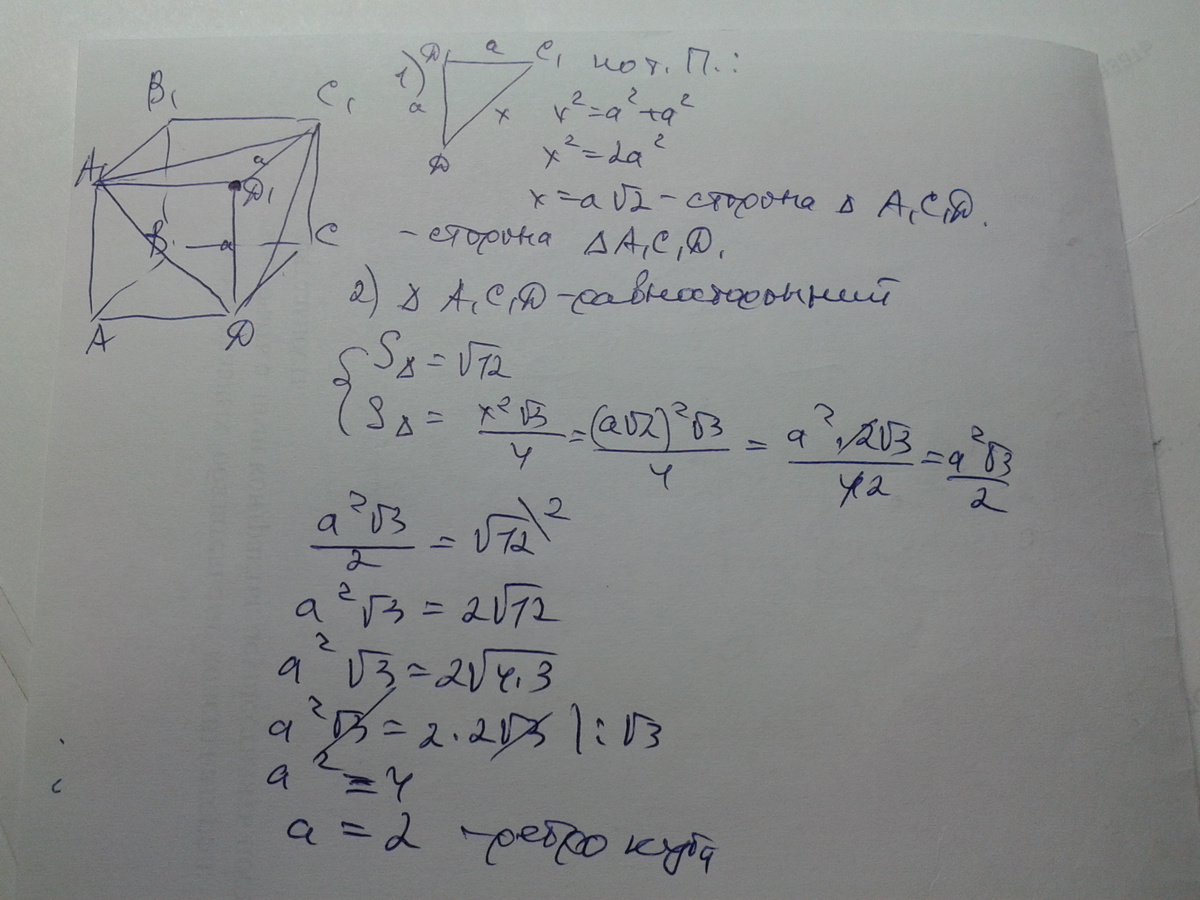 B₁ C₁
A₁ D₁ a
B a C
A D
1) D₁ a C₁
a x
D
по т. П.:
x² = a² + a²
x² = 2a²
x = a√2 – сторона Δ A₁C₁D.
– сторона Δ A₁C₁D₁
2) Δ A₁C₁D – равносторонний
{ S_Δ = √12
S_Δ = x²√3/4 = (a√2)²√3/4 = a²·2√3/42 = a²√3/2
a²√3/2 = √12 \2
a²√3 = 2√12
a²√3 = 2√4·3
a²√3 = 2·2√3 | : √3
a² = 4
a = 2 – ребро куба